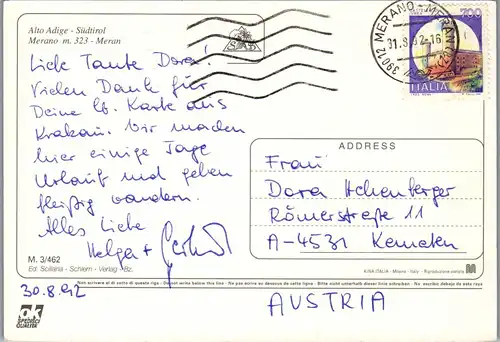 Alto Adige - Südtirol
Merano m. 323 - Meran
Liebe Tante Dora!
Vielen Dank für
Deine lb. Karte aus
Krakau. Wir machen
hier einige Tage
Urlaub und gehen
fleißig wandern.
Alles Liebe
Helga +
M. 3/462
Ed. Scilliria - Schlern - Verlag - Bz.
30.8.92
39012 MERANO - MERAN
31.8.92-16
700
ITALIA
ADDRESS
Frau
Dora
Römerstraße 11
A-4531 Kematen
AUSTRIA
A.N.K ITALIA - Milano - Italy - Riproduzione vietata
Non scrivere al di sotto di questa riga - Do not write below this line - Ne pas écrire au dessous de cette ligne - Bitte nicht unterhalb dieser Linie schreiben - No escriba debajo de esta raya